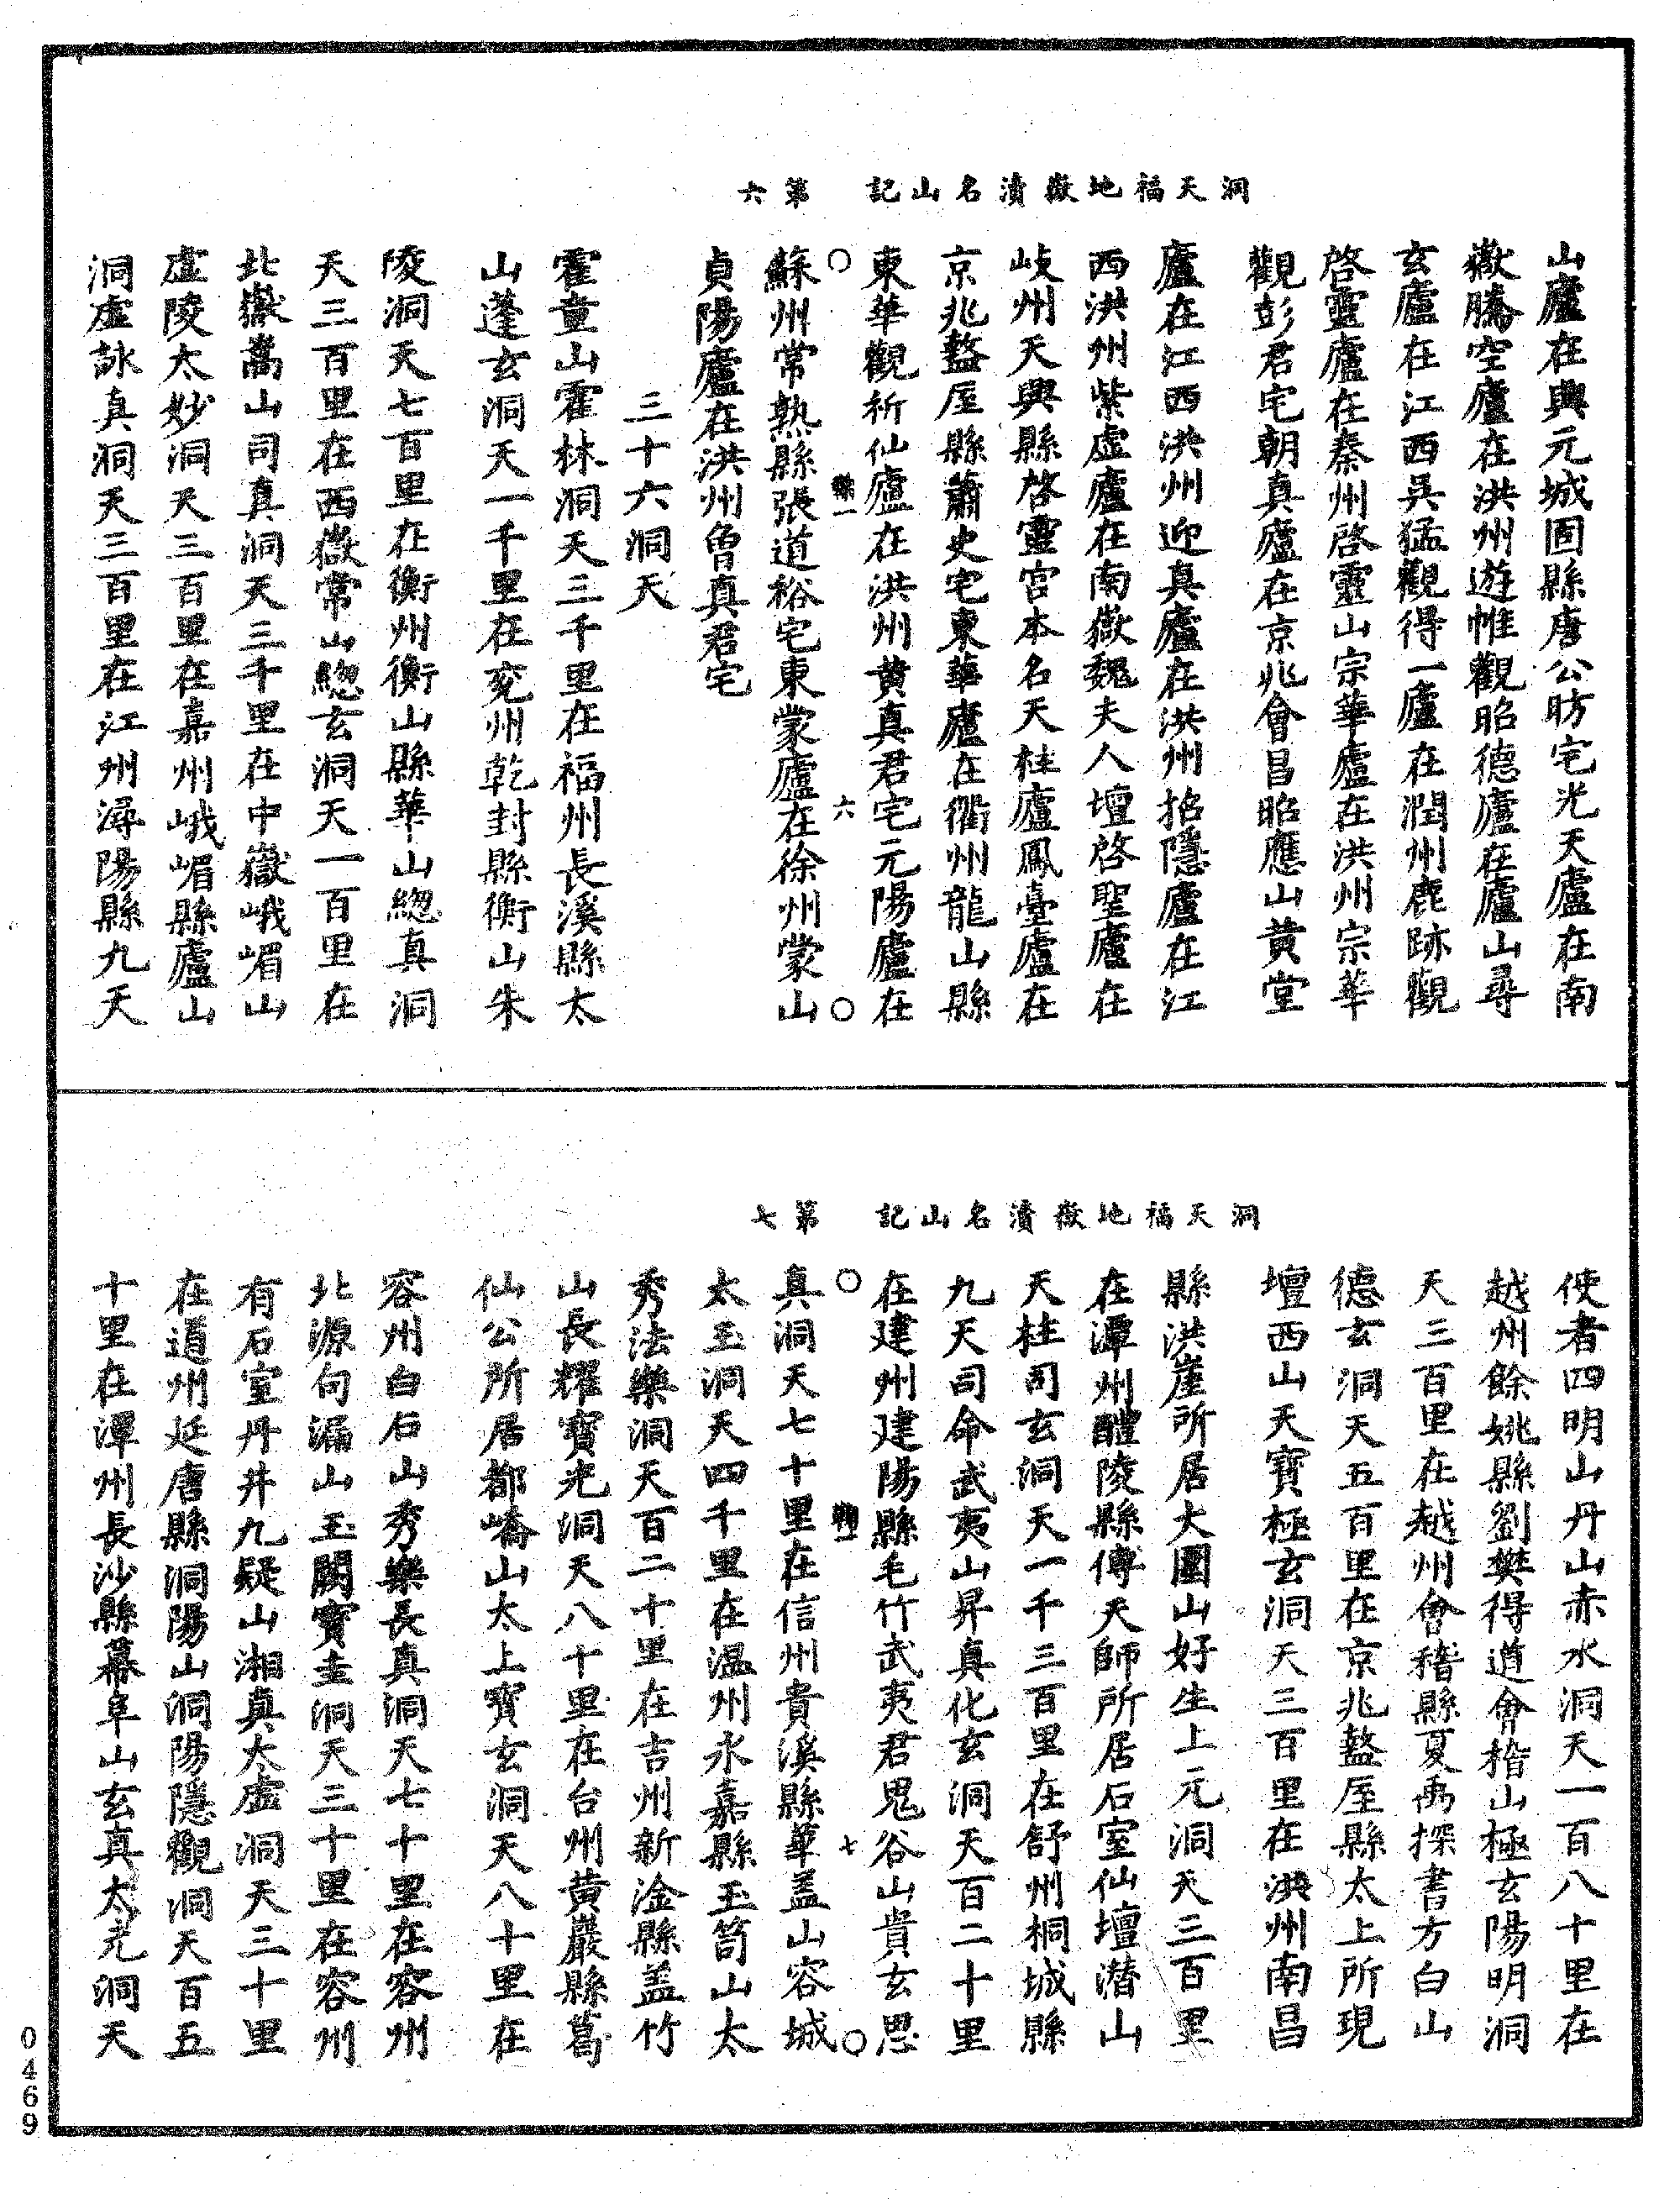 洞天福地嶽瀆名山記　第六
山廬在興元城固縣唐公昉宅光天廬在南
嶽騰空廬在洪州遊帷觀昭德廬在廬山尋
玄廬在江西吳猛觀得一廬在潤州鹿跡觀
啓靈廬在秦州啓靈山宗華廬在洪州宗華
觀彭君宅朝真廬在京兆會昌昭應山黃堂
廬在江西洪州迎真廬在洪州招隱廬在江
西洪州紫虛廬在南嶽魏夫人壇啓聖廬在
岐州天興縣啓靈宮本名天柱廬鳳臺廬在
京兆盩厔縣蕭史宅東華廬在衢州龍山縣
東華觀祈仙廬在洪州黃真君宅元陽廬在
六
蘇州常熟縣張道裕宅東蒙廬在徐州蒙山
貞陽廬在洪州曾真君宅
三十六洞天
霍童山霍林洞天三千里在福州長溪縣太
山蓬玄洞天一千里在兖州乾封縣衡山朱
陵洞天七百里在衡州衡山縣華山緫真洞
天三百里在西嶽常山緫玄洞天一百里在
北嶽嵩山司真洞天三千里在中嶽峨嵋山
虛陵太妙洞天三百里在嘉州峨嵋縣廬山
洞虛詠真洞天三百里在江州潯陽縣九天
洞天福地嶽瀆名山記　第七
使者四明山丹山赤水洞天一百八十里在
越州餘姚縣劉樊得道會稽山極玄陽明洞
天三百里在越州會稽縣夏禹探書方白山
德玄洞天五百里在京兆盩厔縣太上所現
壇西山天寶極玄洞天三百里在洪州南昌
縣洪崖所居大圍山好生上元洞天三百里
在潭州醴陵縣傅天師所居石室仙壇潜山
天柱司玄洞天一千三百里在舒州桐城縣
九天司命武夷山昇真化玄洞天百二十里
在建州建陽縣毛竹武夷君鬼谷山貴玄思
七
真洞天七十里在信州貴溪縣華盖山容城
太玉洞天四千里在温州永嘉縣玉笥山太
秀法樂洞天百二十里在吉州新淦縣盖竹
山長耀寶光洞天八十里在台州黃巖縣葛
仙公所居都嶠山太上寶玄洞天八十里在
容州白石山秀樂長真洞天七十里在容州
北源句漏山玉闕寶圭洞天三十里在容州
有石室丹井九疑山湘真太虛洞天三十里
在道州延唐縣洞陽山洞陽隱觀洞天百五
十里在潭州長沙縣幕阜山玄真太光洞天
0469